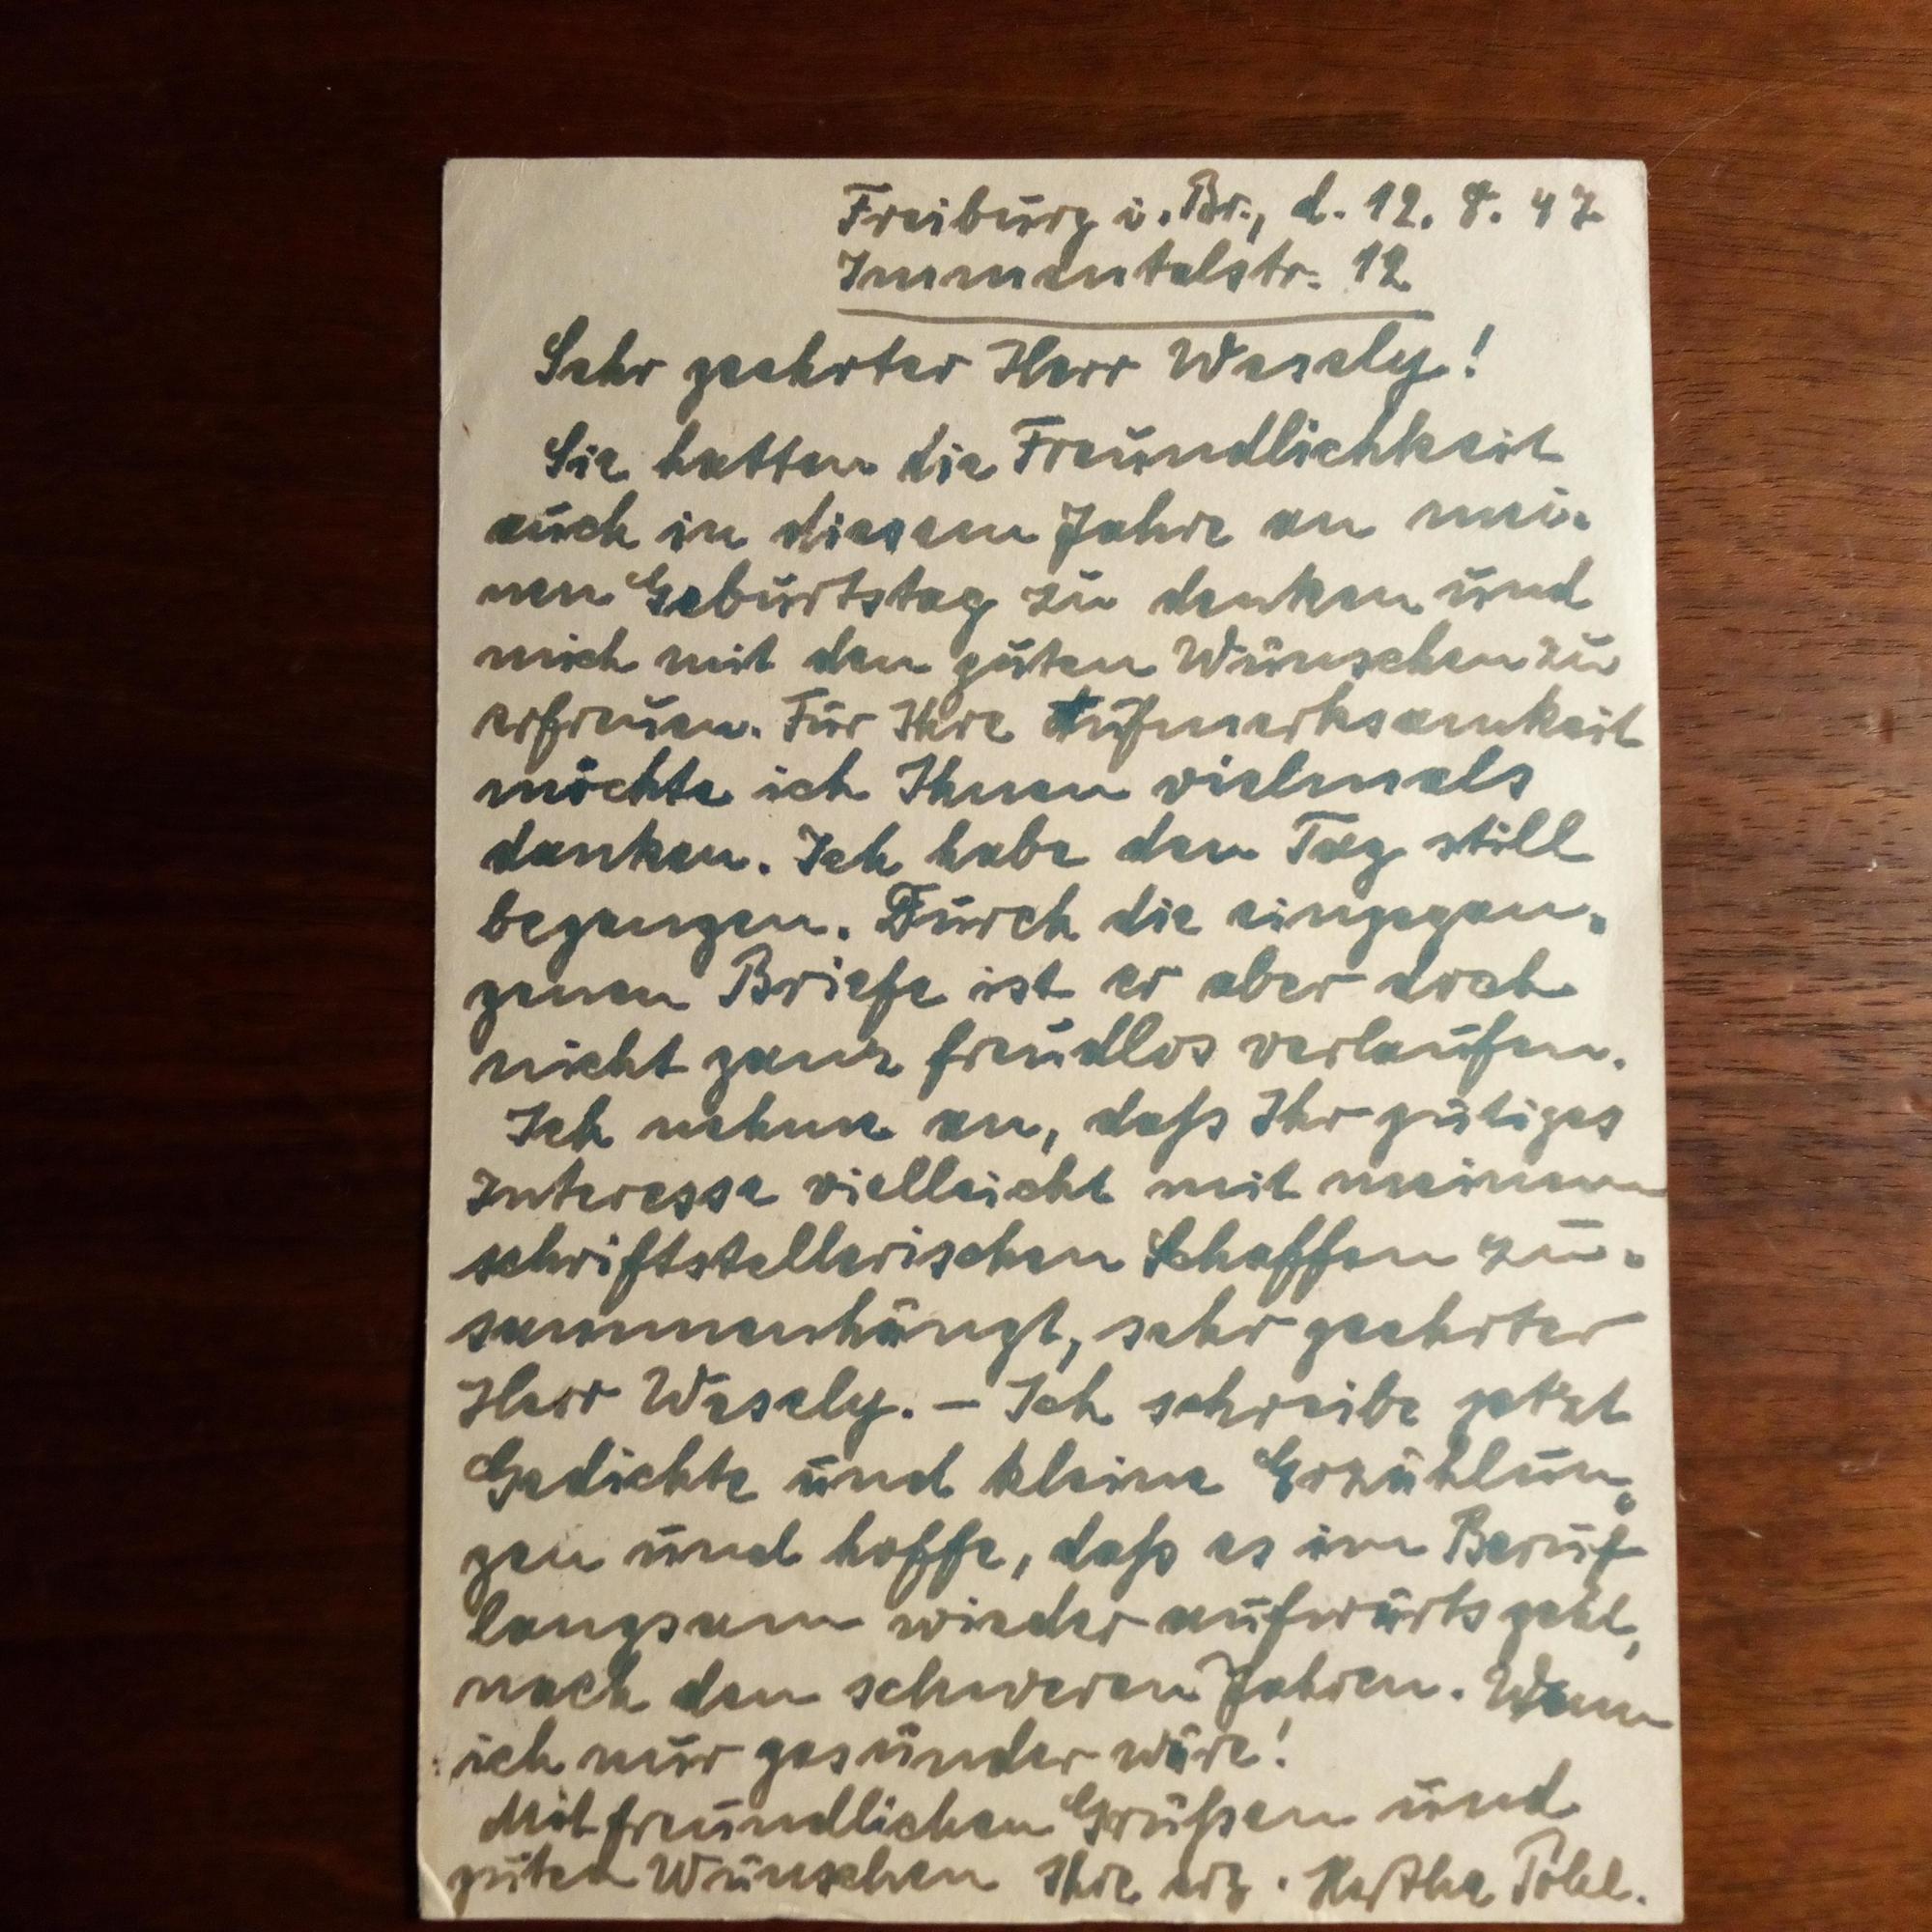 Freiburg i. Br., d. 12. 8. 47
Immentalstr. 12
Sehr geehrter Herr Wesely!
Sie hatten die Freundlichkeit
auch in diesem Jahre an mei-
nen Geburtstag zu denken und
mich mit den guten Wünschen zu
erfreuen. Für Ihre Aufmerksamkeit
möchte ich Ihnen vielmals
danken. Ich habe den Tag still
begangen. Durch die eingegan-
genen Briefe ist er aber doch
nicht ganz freudlos verlaufen.
Ich nehme an, daß Ihr gütiges
Interesse vielleicht mit meinem
schriftstellerischen Schaffen zu-
sammenhängt, sehr geehrter
Herr Wesely. – Ich schreibe jetzt
Gedichte und kleine Erzählun-
gen und hoffe, daß es im Beruf
langsam wieder aufwärts geht,
nach den schweren Jahren. Wenn
ich nur gesünder wäre!
Mit freundlichen Grüßen und
guten Wünschen Ihre erg. Hertha Pohl.